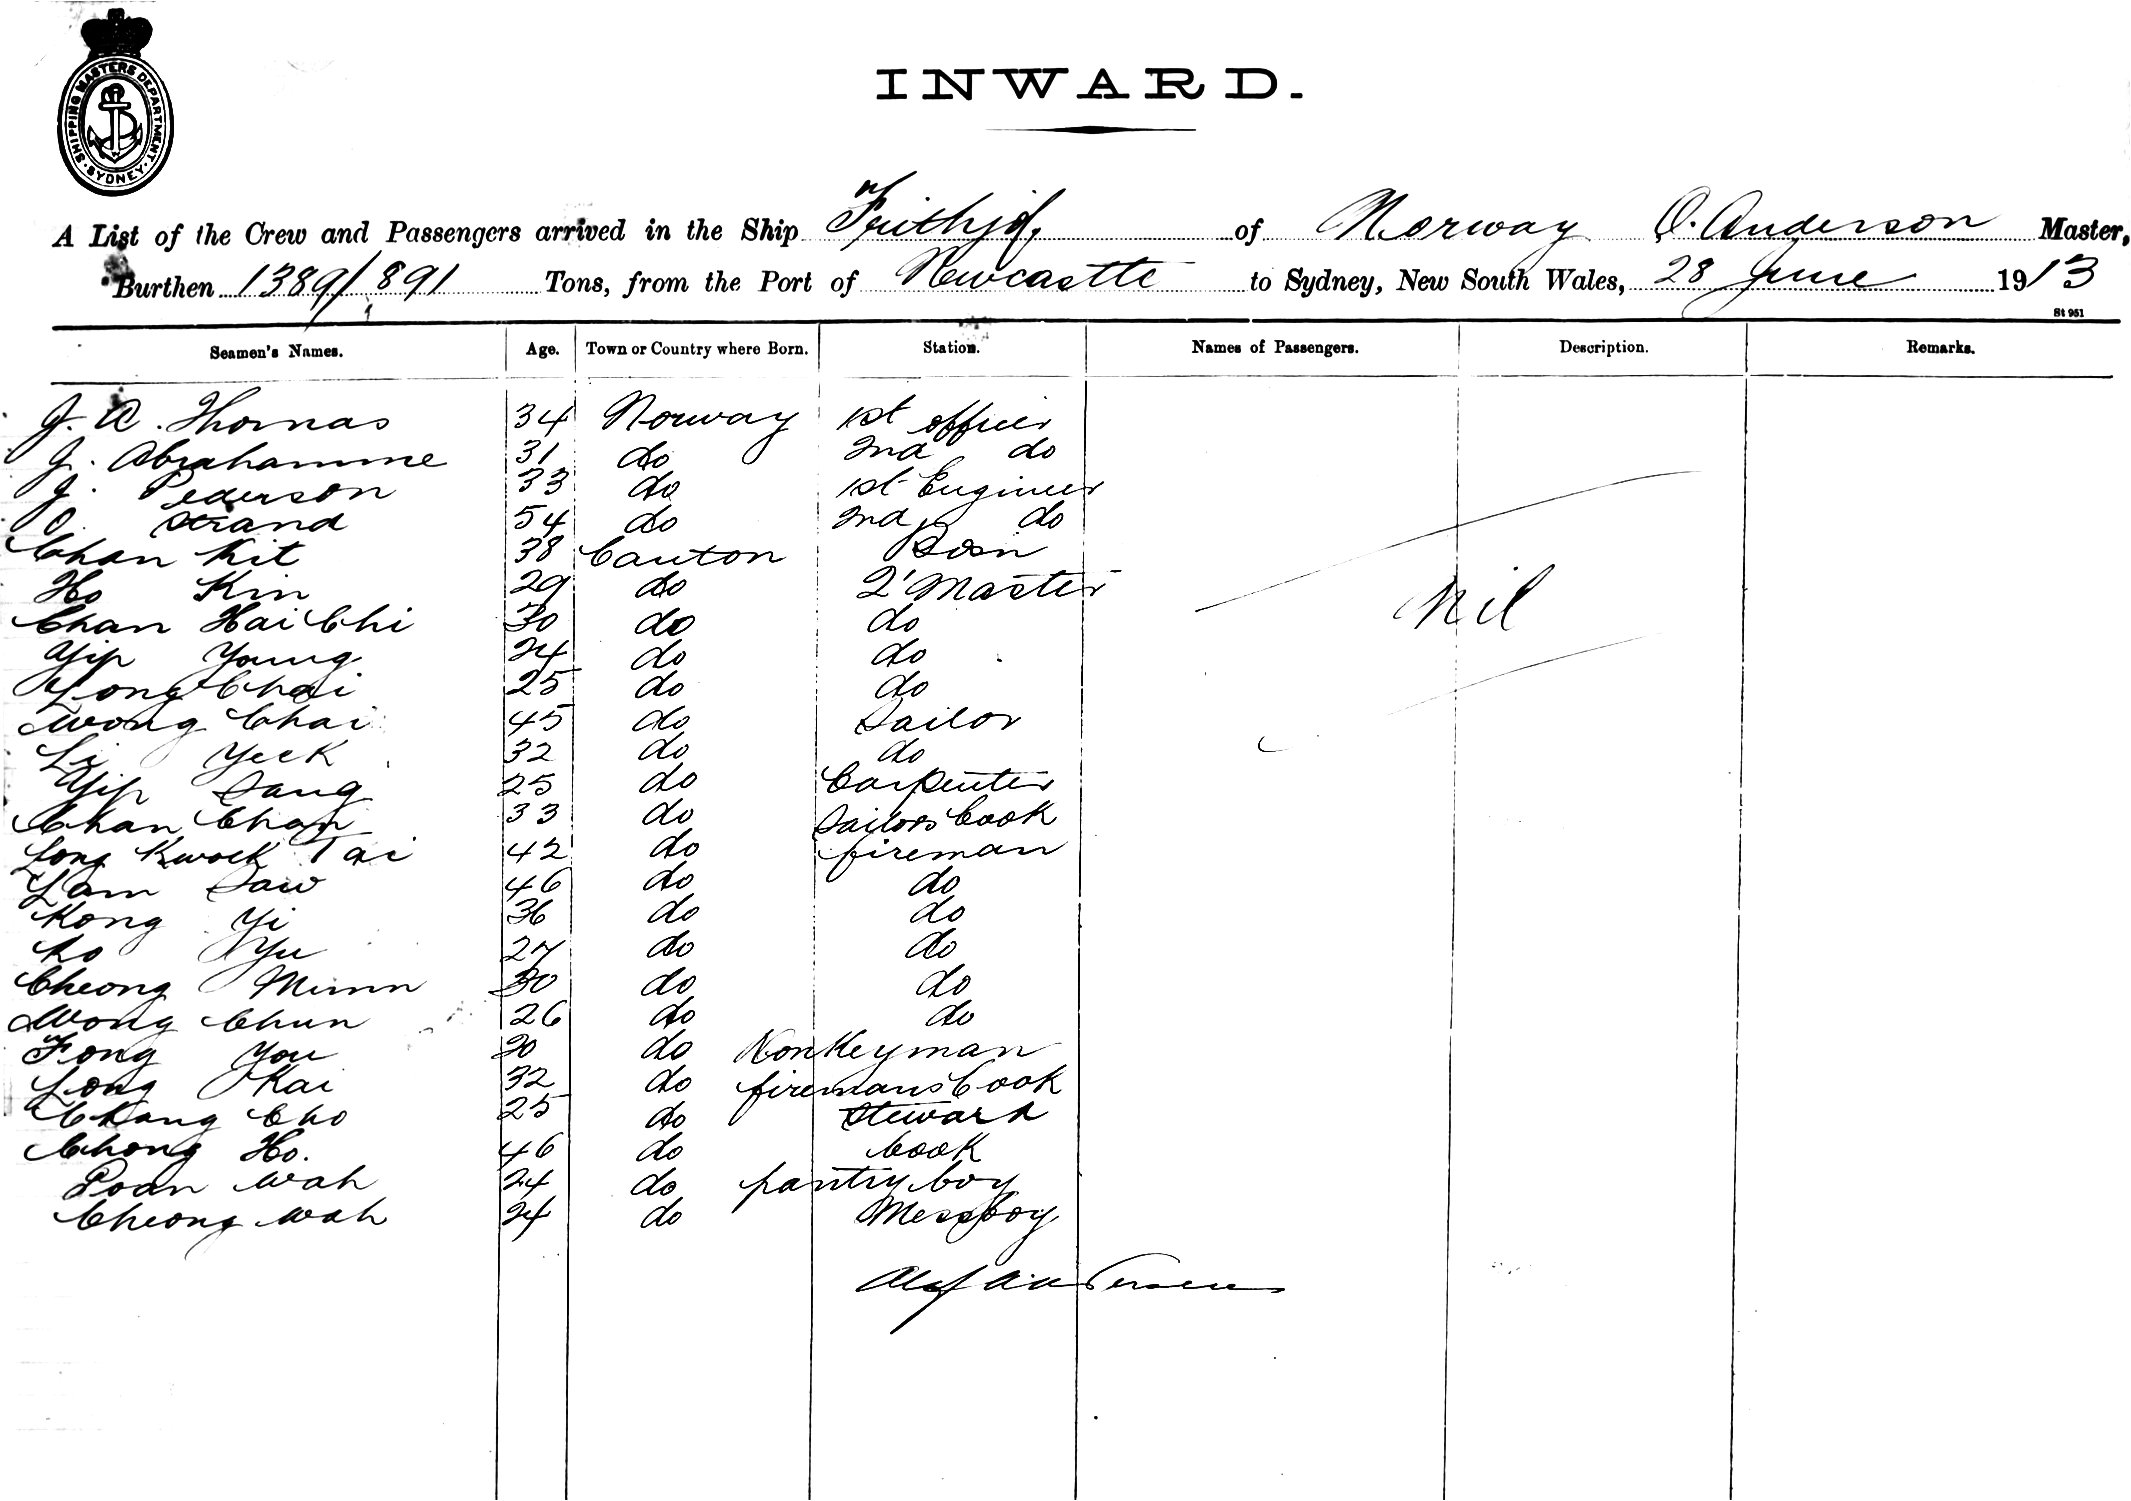 SHIPPING MASTERS DEPARTMENT · SYDNEY ·
INWARD.
A List of the Crew and Passengers arrived in the Ship Frithjof, of Norway O. Anderson Master,
Burthen 1389/891 Tons, from the Port of Newcastle to Sydney, New South Wales, 28 June 1913
St 951
Seamen's Names. Age. Town or Country where Born. Station. Names of Passengers. Description. Remarks.
J. A. Thomas 34 Norway 1st officer
J. Abrahamme 31 do 2nd do
J. Pederson 33 do 1st Engineer
O. Strand 54 do 2nd do
Chan Kit 38 Canton Bosn
Ho Kin 29 do Q'Master
Nil
Chan Hai Chi 30 do do
Yip Young 24 do do
Long Chai 25 do do
Wong Chai 45 do Sailor
Li Yeek 32 do do
Yip Sang 25 do Carpenter
Chan Chan 33 do Sailors Cook
Long Kwock Tai 42 do fireman
Lam Saw 46 do do
Kong Yi 36 do do
Ho Yu 27 do do
Cheong Munn 30 do do
Wong Chun 26 do do
Fong You 30 do Donkeyman
Long Kai 32 do firemans Cook
Chang Cho 25 do Steward
Chong Ho. 46 do Cook
Poan Wah 24 do pantry boy
Cheong Wah 24 do Messboy
Olaf Andersen